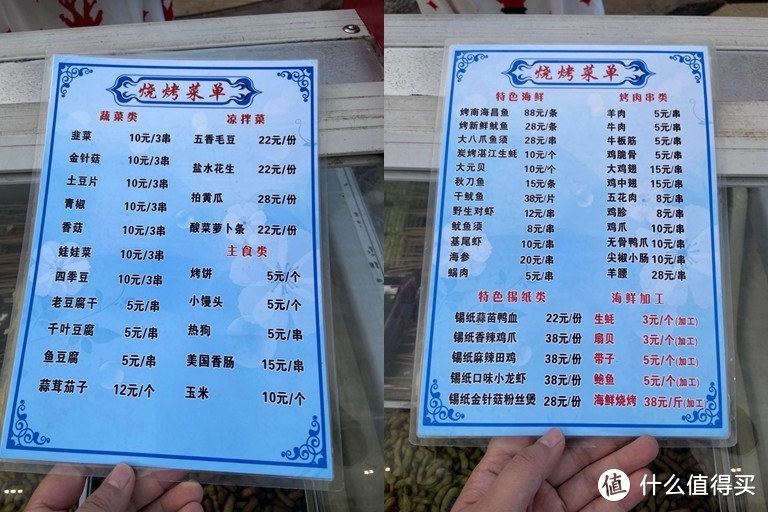 烧烤菜单
蔬菜类
韭菜 10元/3串
金针菇 10元/3串
土豆片 10元/3串
青椒 10元/3串
香菇 10元/3串
娃娃菜 10元/3串
四季豆 10元/3串
老豆腐干 5元/串
千叶豆腐 5元/串
鱼豆腐 5元/串
蒜茸茄子 12元/个
凉拌菜
五香毛豆 22元/份
盐水花生 22元/份
拍黄瓜 28元/份
酸菜萝卜条 22元/份
主食类
烤饼 5元/个
小馒头 5元/个
热狗 5元/串
美国香肠 15元/串
玉米 10元/个
烧烤菜单
特色海鲜
烤南海昌鱼 88元/条
烤新鲜鱿鱼 28元/条
大八爪鱼须 28元/串
炭烤湛江生蚝 10元/个
大元贝 10元/个
秋刀鱼 15元/条
干鱿鱼 38元/片
野生对虾 12元/串
鱿鱼须 8元/串
基尾虾 10元/串
海参 20元/串
蜗肉 5元/串
烤肉串类
羊肉 5元/串
牛肉 5元/串
牛板筋 5元/串
鸡脆骨 5元/串
大鸡翅 15元/串
鸡中翅 15元/串
五花肉 8元/串
鸡胗 8元/串
鸡爪 10元/串
无骨鸭爪 10元/串
尖椒小肠 10元/串
羊腰 28元/串
特色锡纸类
锡纸蒜苗鸭血 22元/份
锡纸香辣鸡爪 38元/份
锡纸麻辣田鸡 38元/份
锡纸口味小龙虾 38元/份
锡纸金针菇粉丝煲 28元/份
海鲜加工
生蚝 3元/个(加工)
扇贝 3元/个(加工)
带子 5元/个(加工)
鲍鱼 5元/个(加工)
海鲜烧烤 38元/斤(加工)
值 什么值得买